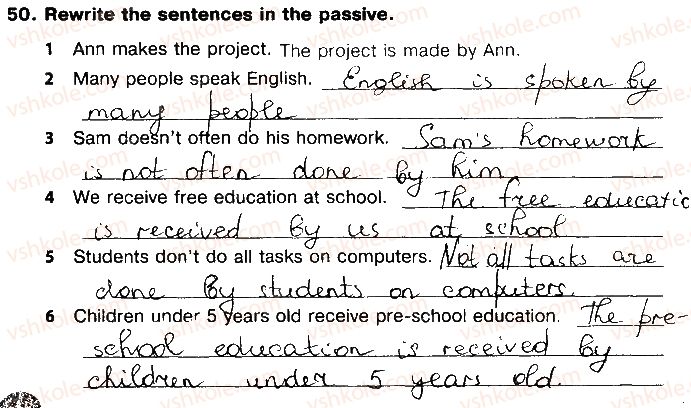 50. Rewrite the sentences in the passive.
1 Ann makes the project. The project is made by Ann.
2 Many people speak English. English is spoken by
many people
3 Sam doesn't often do his homework. Sam's homework
is not often done by him.
4 We receive free education at school. The free educatic
is received by us at school
5 Students don't do all tasks on computers. Not all tasks are
done by students on computers.
6 Children under 5 years old receive pre-school education. The pre-
school education is received by
children under 5 years old.